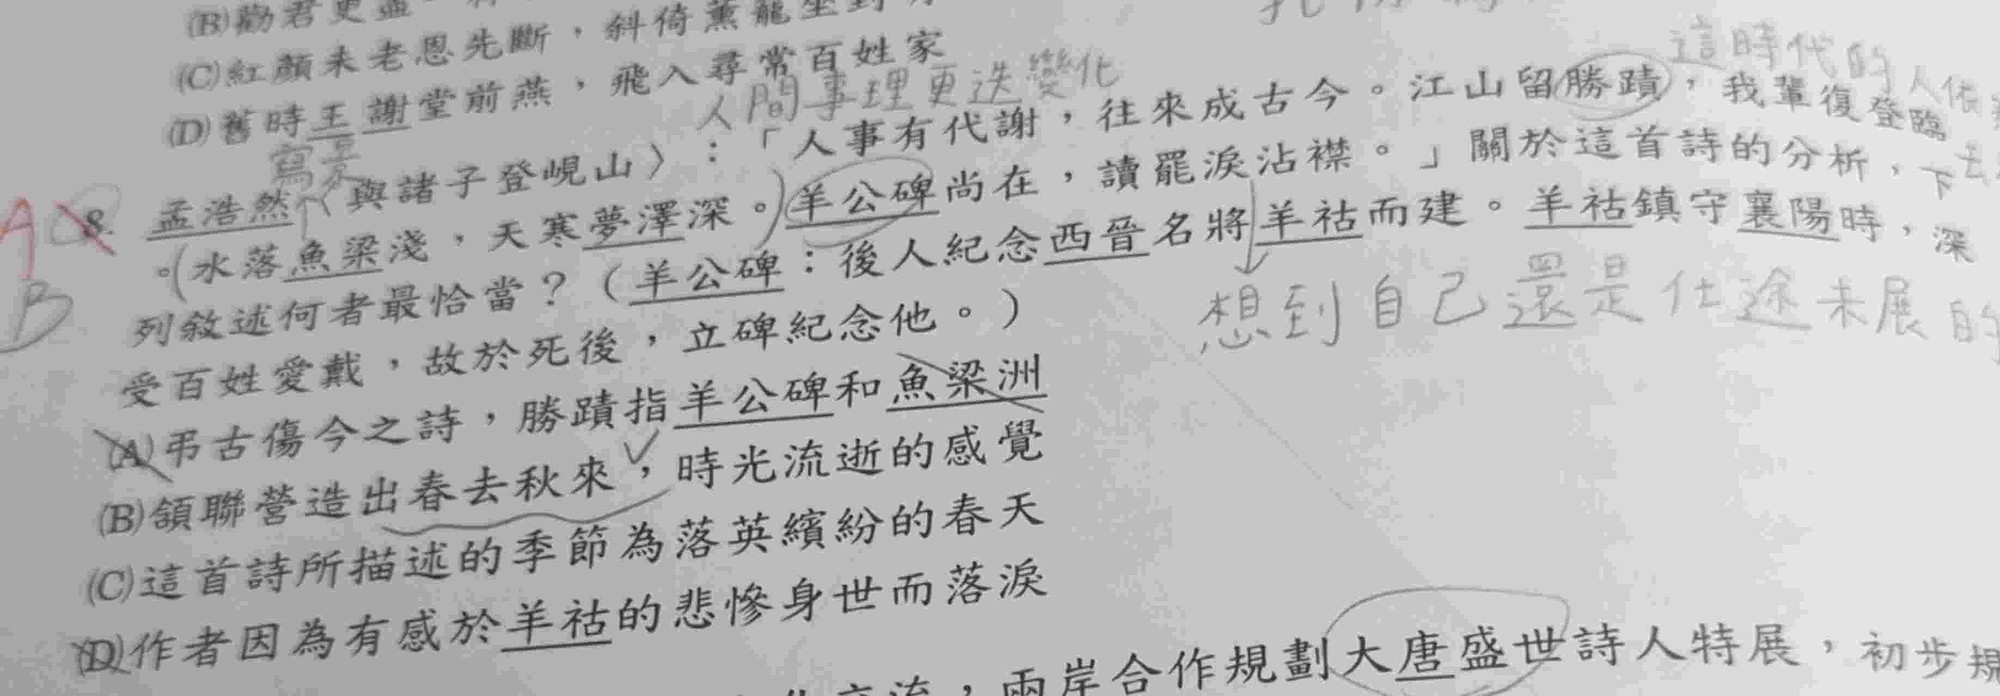 (B)勸君更盡
(C)紅顏未老恩先斷，斜倚薰籠坐到
(D)舊時王謝堂前燕，飛入尋常百姓家
這時代的人依
人間事理更迭變化
寫景
A
8. 孟浩然〈與諸子登峴山〉：「人事有代謝，往來成古今。江山留勝蹟，我輩復登臨
。(水落魚梁淺，天寒夢澤深。)羊公碑尚在，讀罷淚沾襟。」關於這首詩的分析，下
B
列敘述何者最恰當？（羊公碑：後人紀念西晉名將羊祜而建。羊祜鎮守襄陽時，深
受百姓愛戴，故於死後，立碑紀念他。）
想到自己還是仕途未展的
(A)弔古傷今之詩，勝蹟指羊公碑和魚梁洲
(B)頷聯營造出春去秋來，時光流逝的感覺
(C)這首詩所描述的季節為落英繽紛的春天
(D)作者因為有感於羊祜的悲慘身世而落淚
流，兩岸合作規劃大唐盛世詩人特展，初步規